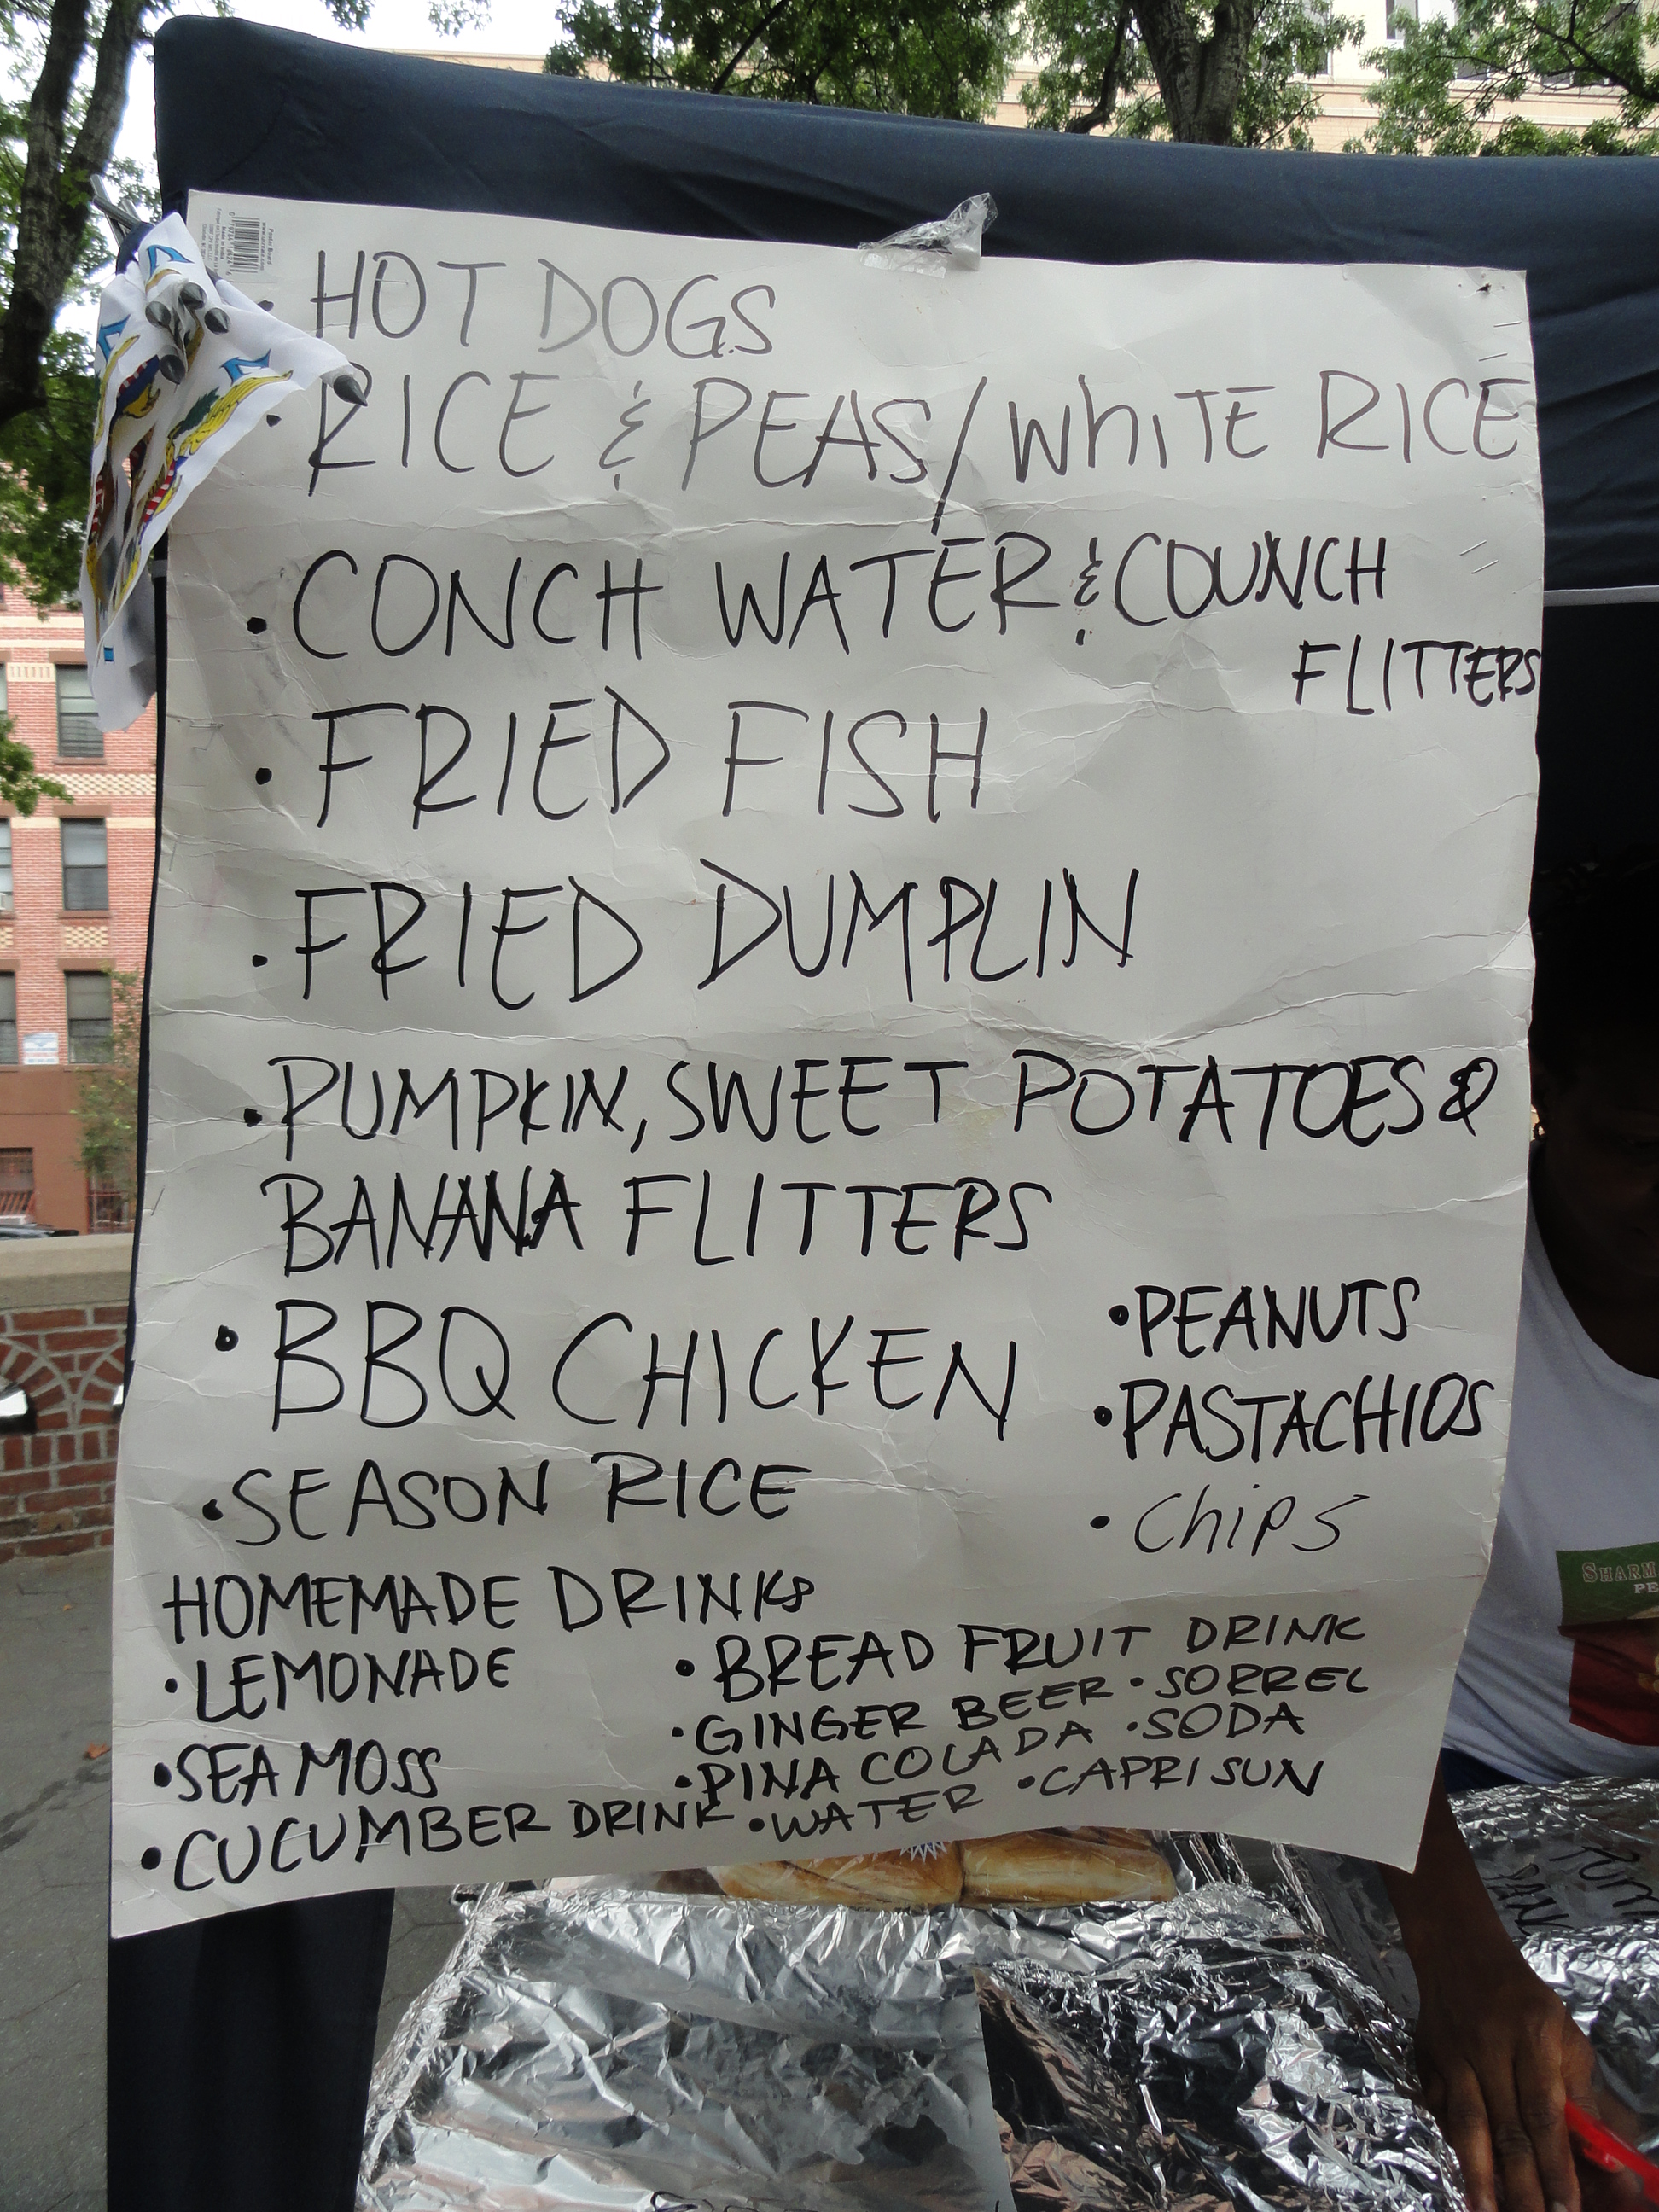 • HOT DOGS
• RICE & PEAS/WhITE RICE
• CONCH WATER & COUNCH
FLITTERS
• FRIED FISH
• FRIED DUMPLIN
• PUMPKIN, SWEET POTATOES &
BANANA FLITTERS
• BBQ CHICKEN
• PEANUTS
• PASTACHIOS
• SEASON RICE
• ChiPS
HOMEMADE DRINKS
• LEMONADE
• BREAD FRUIT DRINK
• GINGER BEER • SORREL
• SEA MOSS
• PINA COLADA • SODA
• CUCUMBER DRINK • WATER • CAPRI SUN
SHARM
PE